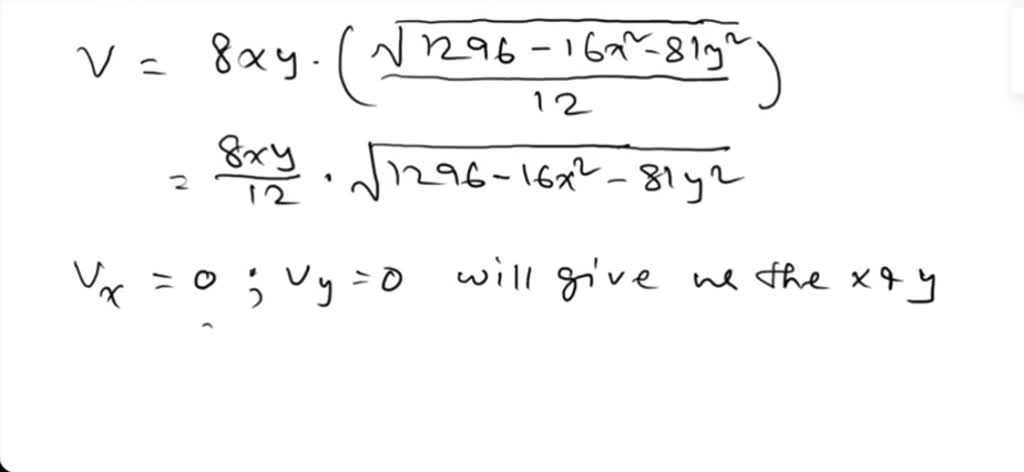 V = 8xy · (√(1296 - 16x² - 81y²) / 12)
= 8xy/12 · √(1296 - 16x² - 81y²)
Vx = 0 ; Vy = 0 will give us the x & y